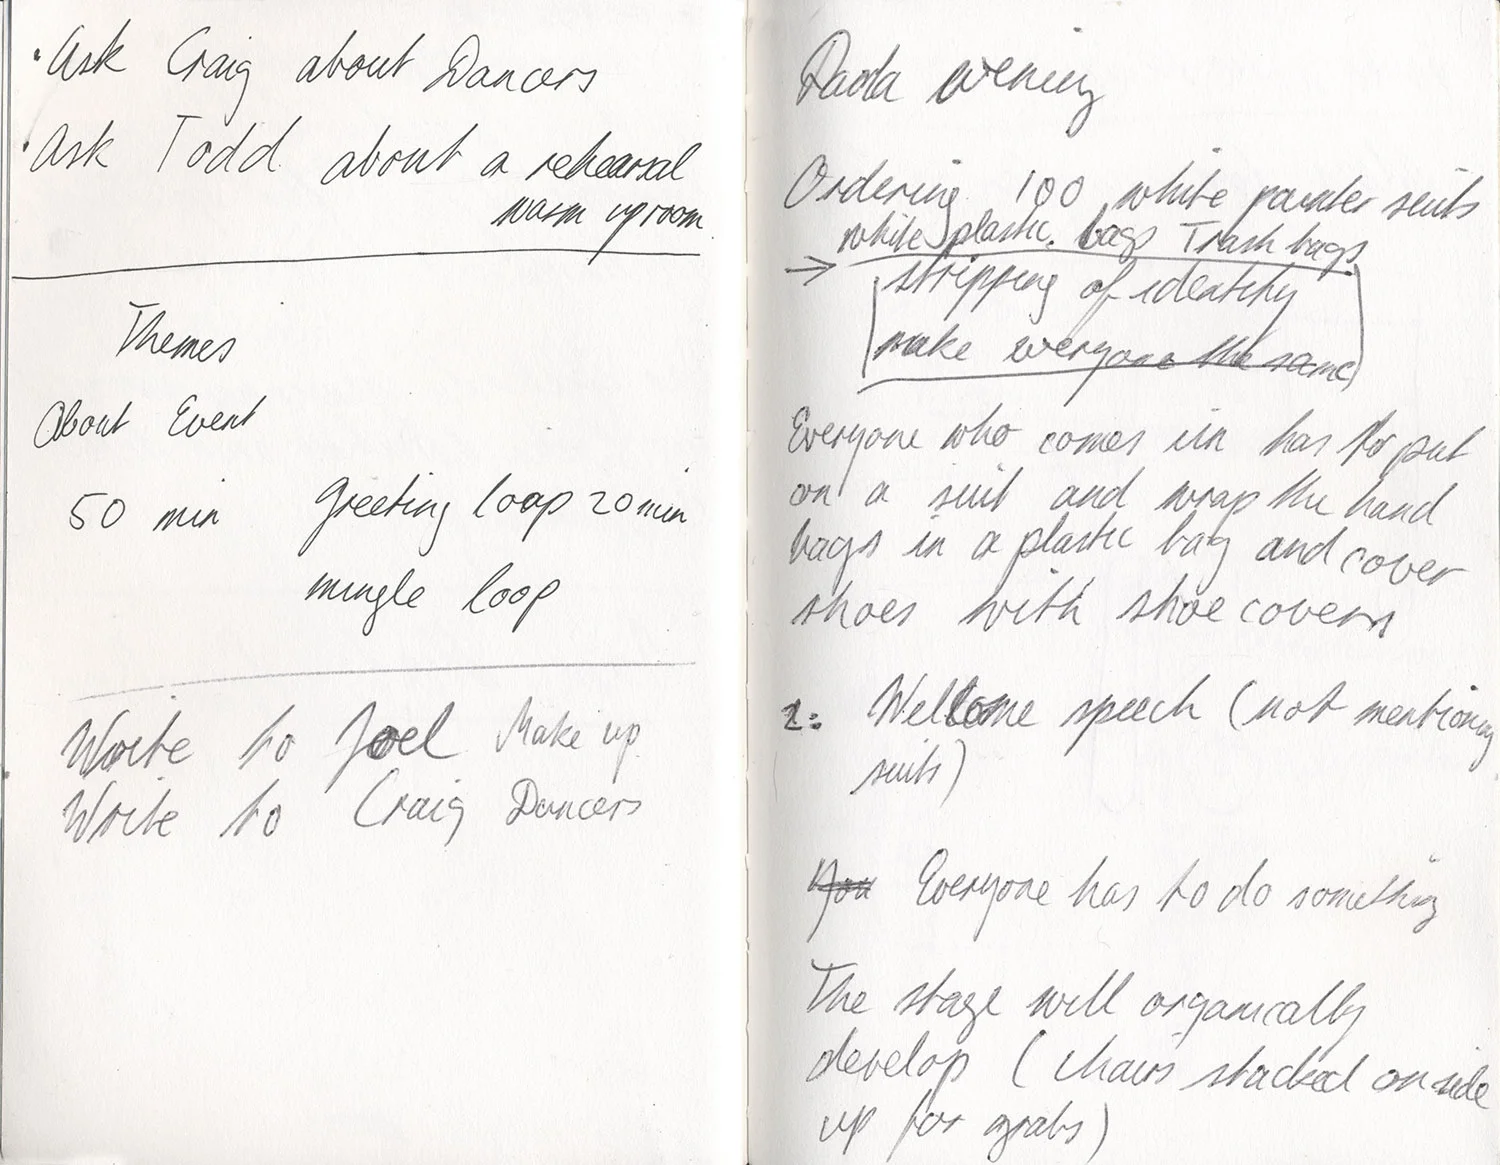 • Ask Craig about Dancers
• Ask Todd about a rehearsal
warm up room
Themes
About Event
50 min greeting loop 20 min
mingle loop
Write to Joel Make up
Write to Craig Dancers
Dada evening
Ordering 100 white painter suits
white plastic bags Trash bags
→ stripping of identity
make everyone the same
Everyone who comes in has to put
on a suit and wrap the hand
bags in a plastic bag and cover
shoes with shoe covers
2: Welcome speech (not mentioning
suits)
You Everyone has to do something
The stage will organically
develop (chairs stacked on side
up for grabs)